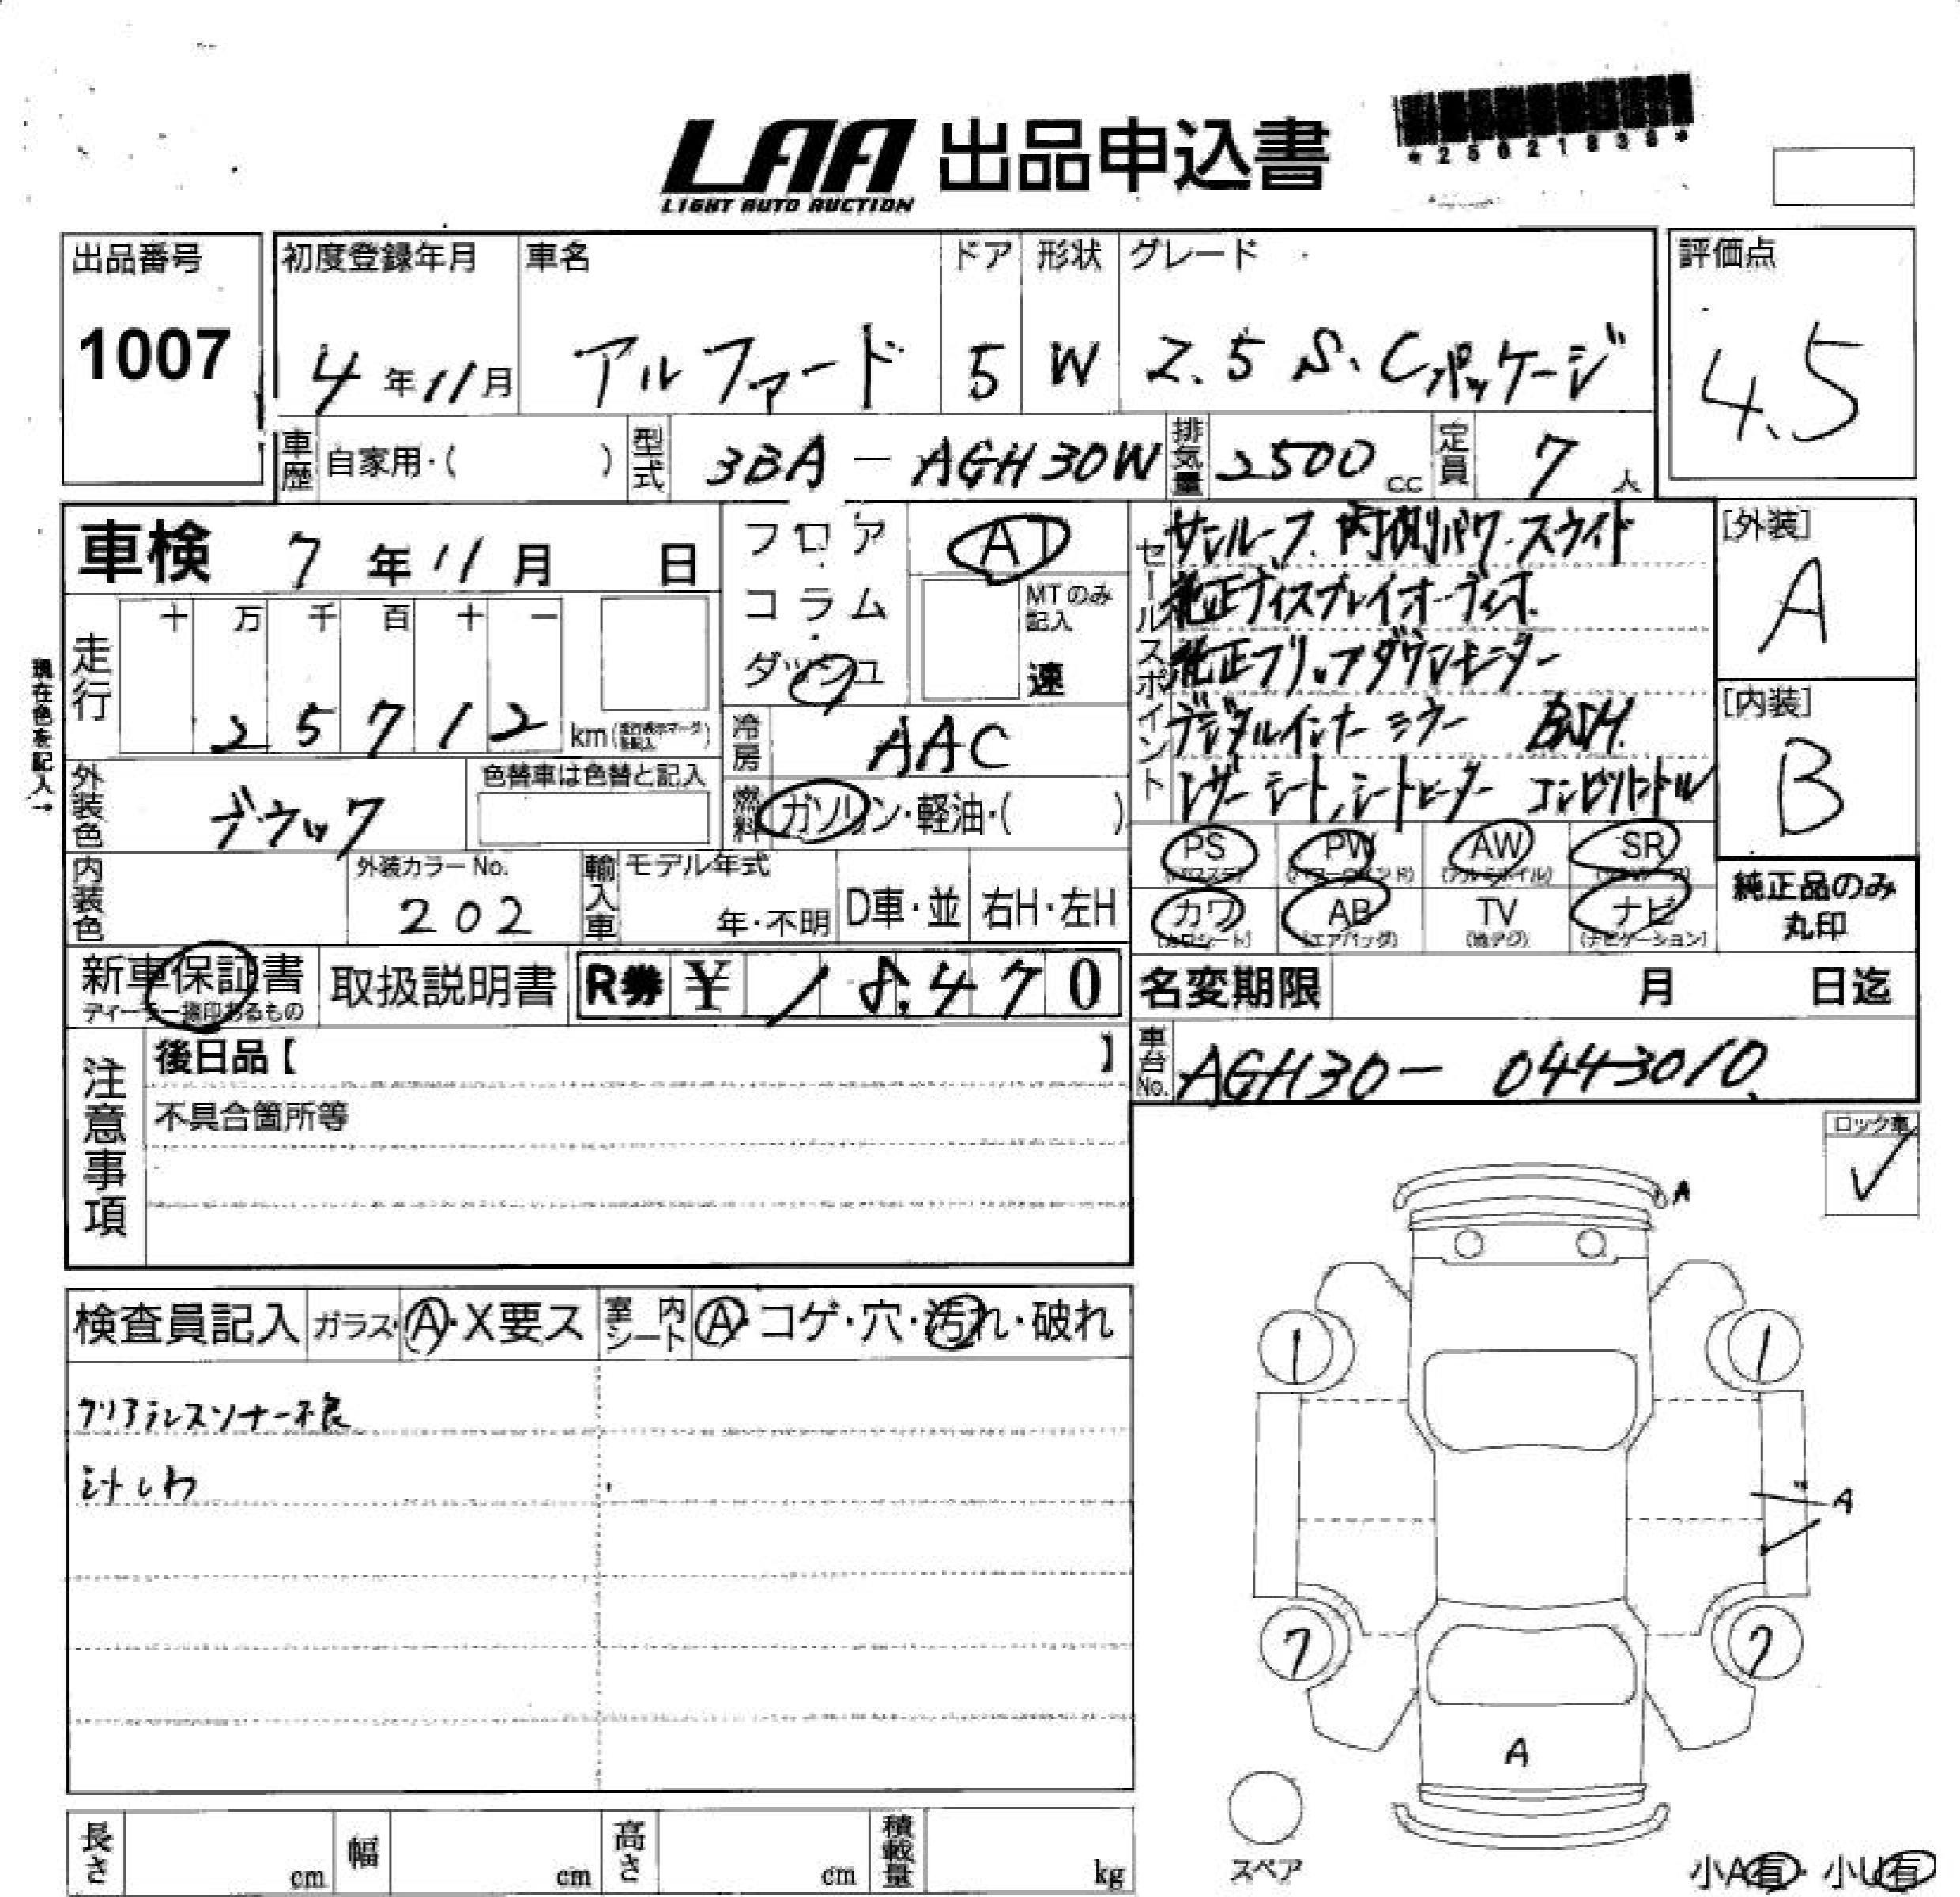 LAA 出品申込書
LIGHT AUTO AUCTION
*25621836*
出品番号
1007
初度登録年月 車名 ドア 形状 グレード
4年11月 アルファード 5 W 2.5 S.Cパッケージ
評価点
4.5
車歴 自家用・( ) 型式 3BA-AGH30W 排気量 2500cc 定員 7人
車検 7年11月 日
フロア
コラム
ダッシュ
AT
MTのみ
記入
速
セールスポイント
サンルーフ. 両側パワースライド
純正ディスプレイオーディオ.
純正フリップダウンモニター
デジタルインナーミラー BSM.
レザーシート,シートヒーター
[外装]
A
[内装]
B
現在色を記入→
走行
十 万 千 百 十 一
25712 km
冷房 AAC
燃料 ガソリン・軽油・( )
外装色 ブラック
色替車は色替と記入
内装色
外装カラーNo.
202
輸入車 モデル年式
年・不明 D車・並 右H・左H
PS PW AW SR
カワ AB TV ナビ
(カワシート) (エアバッグ) (地デジ) (ナビゲーション)
純正品のみ
丸印
新車保証書
取扱説明書 R券 ¥ 18,470
名変期限 月 日迄
車台No. AGH30-0443010
注意事項
後日品【 】
不具合箇所等
ロック車
✓
A
検査員記入 ガラス・A・X要ス 室内シート A・コゲ・穴・汚れ・破れ
クリアランスソナー不良
シートしわ
1 1
A
7 7
A
スペア
長さ cm 幅 cm 高さ cm 積載量 kg
小A有・小U有